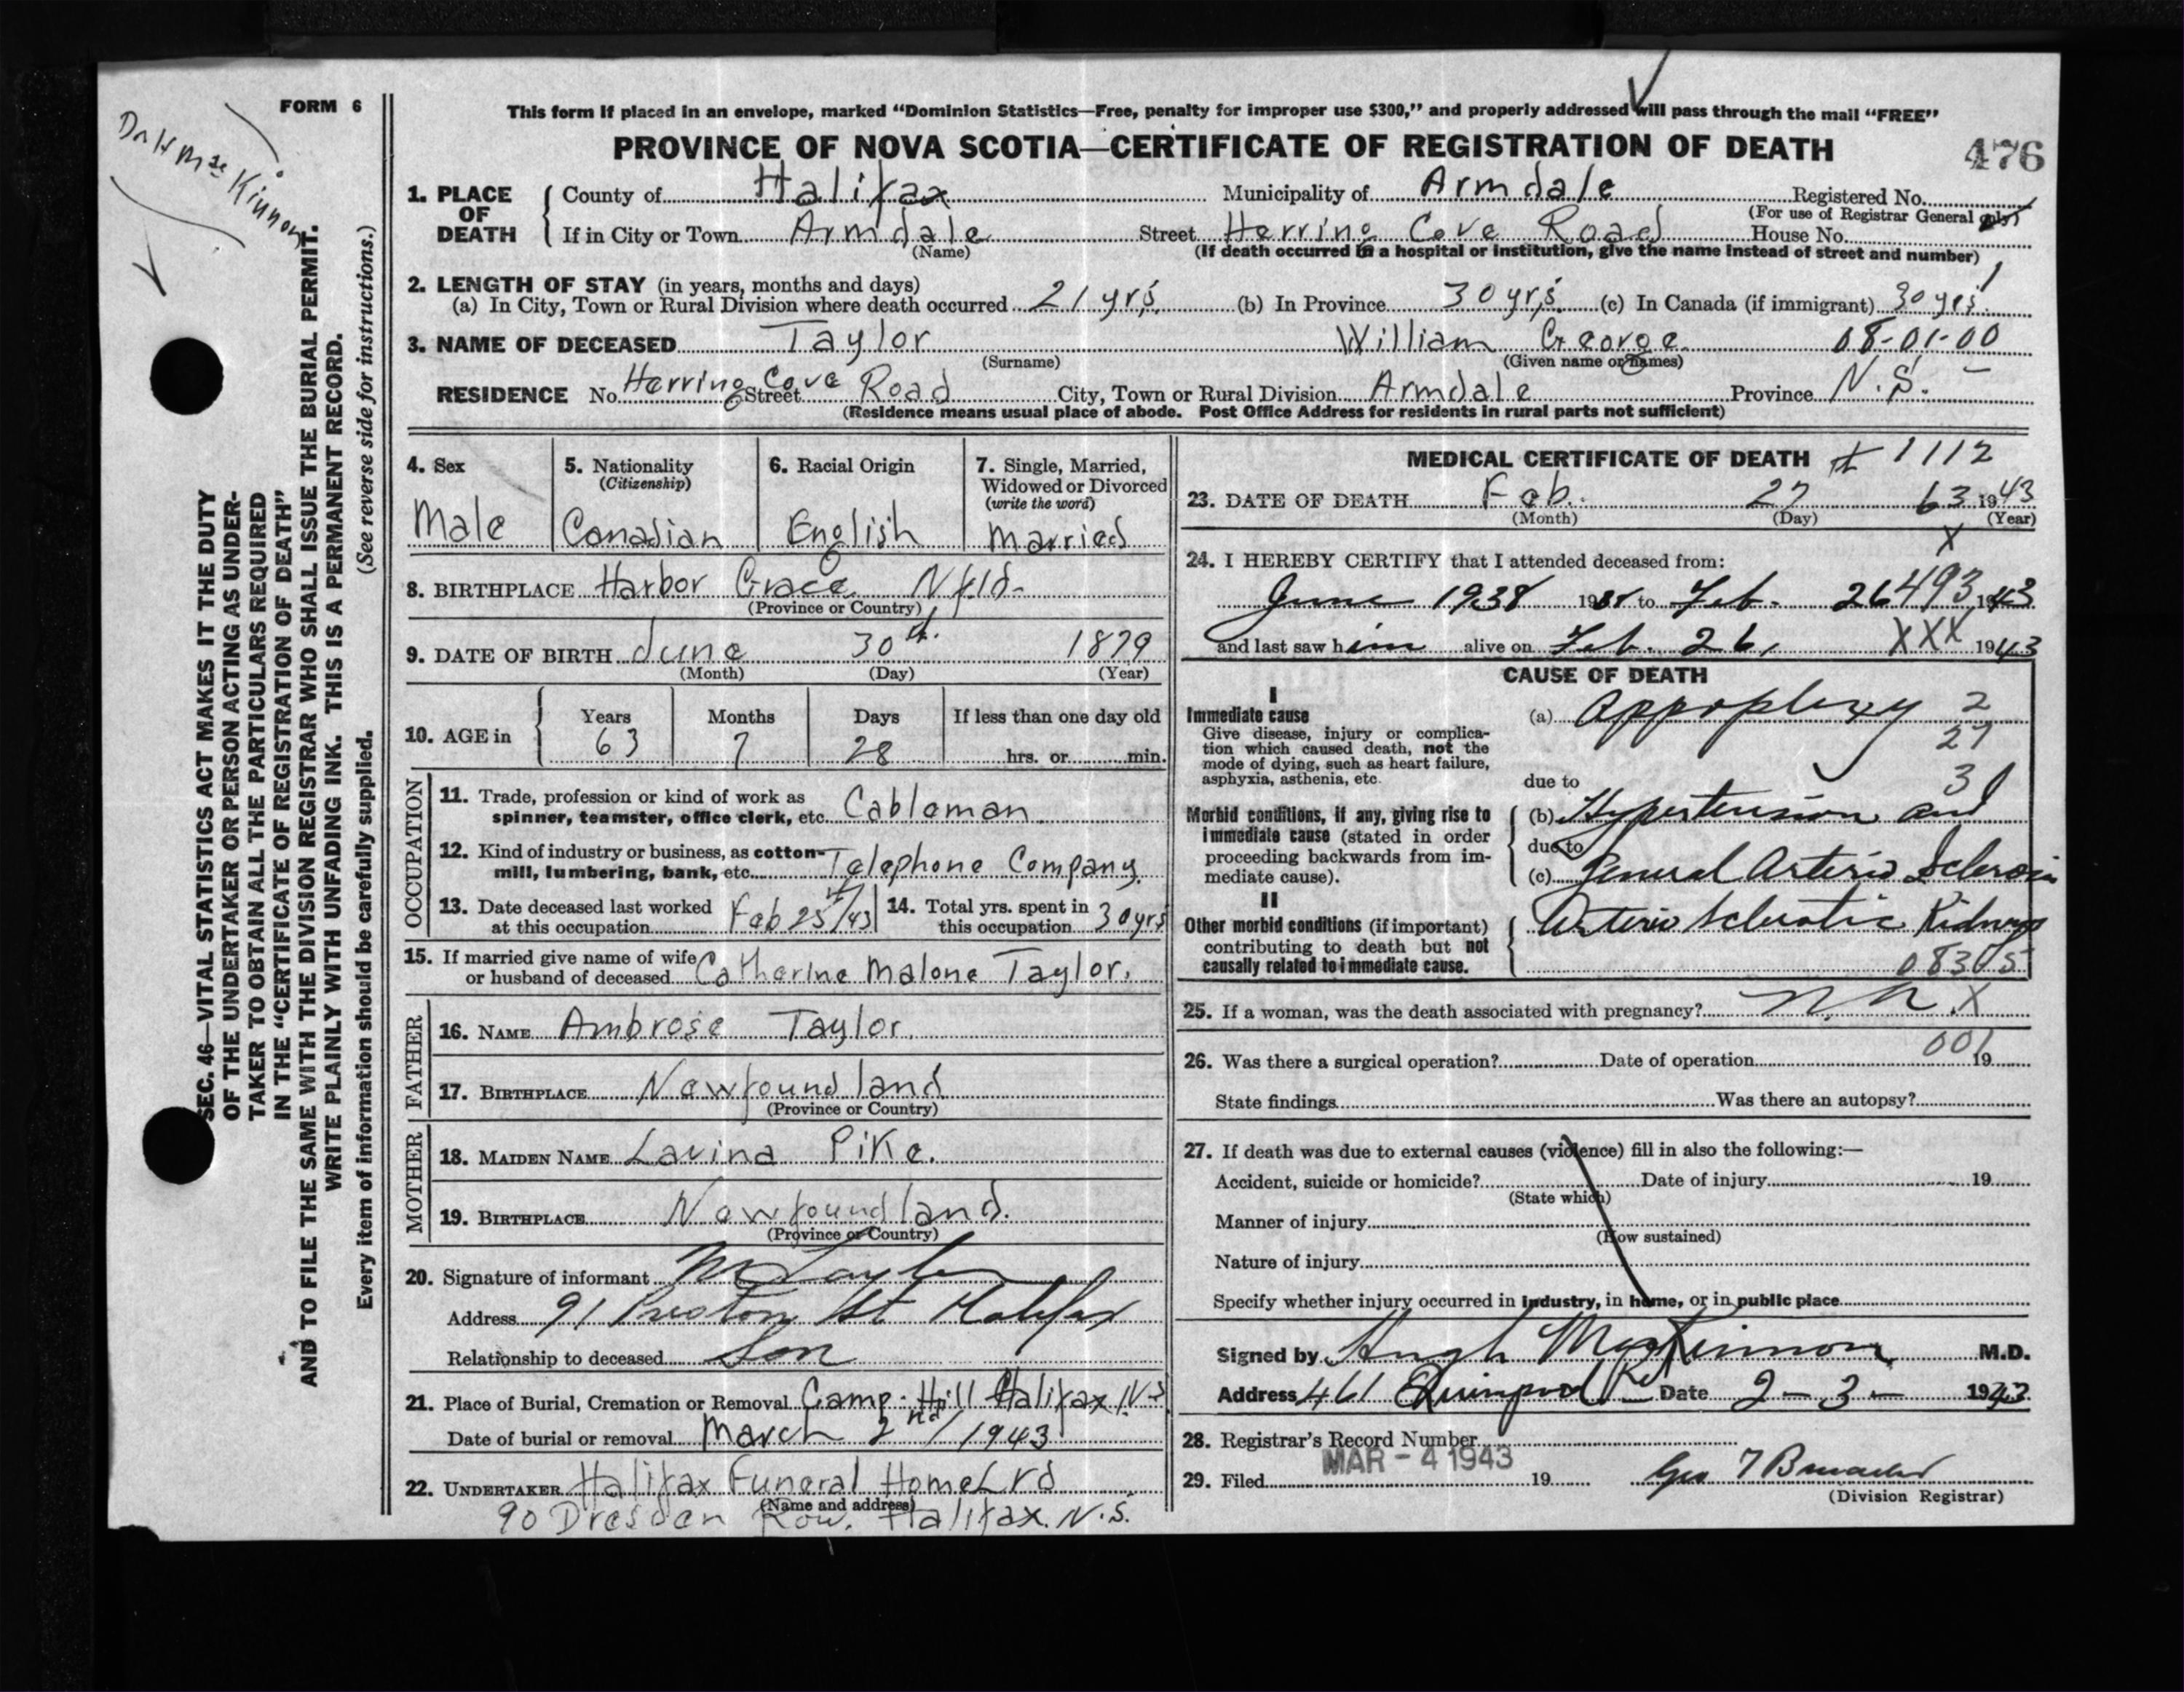 FORM 6
This form if placed in an envelope, marked “Dominion Statistics—Free, penalty for improper use $300,” and properly addressed will pass through the mail “FREE”
PROVINCE OF NOVA SCOTIA—CERTIFICATE OF REGISTRATION OF DEATH
476
Dr H MacKinnon
SEC. 46—VITAL STATISTICS ACT MAKES IT THE DUTY
OF THE UNDERTAKER OR PERSON ACTING AS UNDER-
TAKER TO OBTAIN ALL THE PARTICULARS REQUIRED
IN THE “CERTIFICATE OF REGISTRATION OF DEATH”
AND TO FILE THE SAME WITH THE DIVISION REGISTRAR WHO SHALL ISSUE THE BURIAL PERMIT.
WRITE PLAINLY WITH UNFADING INK. THIS IS A PERMANENT RECORD.
Every item of information should be carefully supplied. (See reverse side for instructions.)
1. PLACE OF DEATH
County of Halifax Municipality of Armdale Registered No.
(For use of Registrar General only)
If in City or Town Armdale Street Herring Cove Road House No.
(Name) (If death occurred in a hospital or institution, give the name instead of street and number)
2. LENGTH OF STAY (in years, months and days)
(a) In City, Town or Rural Division where death occurred 21 yrs. (b) In Province 30 yrs. (c) In Canada (if immigrant) 30 yrs.
3. NAME OF DECEASED Taylor William George 08-01-00
(Surname) (Given name or names)
RESIDENCE No. Herring Cove Street Road City, Town or Rural Division Armdale Province N.S.
(Residence means usual place of abode. Post Office Address for residents in rural parts not sufficient)
4. Sex
Male
5. Nationality
(Citizenship)
Canadian
6. Racial Origin
English
7. Single, Married,
Widowed or Divorced
(write the word)
Married
8. BIRTHPLACE Harbor Grace Nfld.
(Province or Country)
9. DATE OF BIRTH June 30th. 1879
(Month) (Day) (Year)
10. AGE in
Years Months Days If less than one day old
63 7 28 hrs. or min.
OCCUPATION
11. Trade, profession or kind of work as
spinner, teamster, office clerk, etc. Cableman
12. Kind of industry or business, as cotton-
mill, lumbering, bank, etc. Telephone Company.
13. Date deceased last worked
at this occupation Feb 25th/43
14. Total yrs. spent in
this occupation 30 yrs
15. If married give name of wife
or husband of deceased Catherine Malone Taylor.
FATHER
16. NAME Ambrose Taylor.
17. BIRTHPLACE Newfoundland
(Province or Country)
MOTHER
18. MAIDEN NAME Lavina Pike.
19. BIRTHPLACE Newfoundland.
(Province or Country)
20. Signature of informant Taylor
Address 91 Preston St Halifax
Relationship to deceased Son
21. Place of Burial, Cremation or Removal Camp Hill Halifax N.S
Date of burial or removal March 2nd/1943
22. UNDERTAKER Halifax Funeral Home Ltd
(Name and address)
90 Dresden Row. Halifax. N.S.
MEDICAL CERTIFICATE OF DEATH # 1112
23. DATE OF DEATH Feb. 27 63 1943
(Month) (Day) (Year)
X
24. I HEREBY CERTIFY that I attended deceased from:
June 1938 1938 to Feb. 26 493 1943
and last saw him alive on Feb. 26, XXX 1943
CAUSE OF DEATH
I
Immediate cause
Give disease, injury or complica-
tion which caused death, not the
mode of dying, such as heart failure,
asphyxia, asthenia, etc.
(a) Appoplexy 2
27
due to 3
Morbid conditions, if any, giving rise to
immediate cause (stated in order
proceeding backwards from im-
mediate cause).
(b) Hypertension and
due to
(c) General Arterio Sclerosis
II
Other morbid conditions (if important)
contributing to death but not
causally related to immediate cause.
Arterio Sclerotic Kidneys
08305
25. If a woman, was the death associated with pregnancy? X
001
26. Was there a surgical operation? Date of operation 19
State findings Was there an autopsy?
27. If death was due to external causes (violence) fill in also the following:—
Accident, suicide or homicide? Date of injury 19
(State which)
Manner of injury
(How sustained)
Nature of injury
Specify whether injury occurred in industry, in home, or in public place
Signed by Hugh MacKinnon M.D.
Address 461 Quinpool Rd Date 2-3- 1943
28. Registrar's Record Number
29. Filed MAR - 4 1943 19
(Division Registrar)